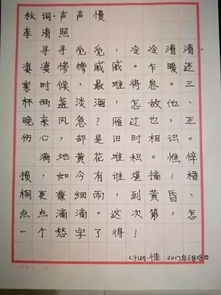 秋词·声声慢
李清照
寻寻觅觅，冷冷清清
凄凄惨惨戚戚。乍暖还
寒时候，最难将息。三、
杯两盏淡酒，怎敌他、
晚来风急？雁过也，正
伤心，却是旧时相识。
满地黄花堆积。憔悴
损，如今有谁堪摘！梧
桐更兼细雨，到黄昏、
点点滴滴。这次第，怎
一个愁字了得！
2017年6月28日